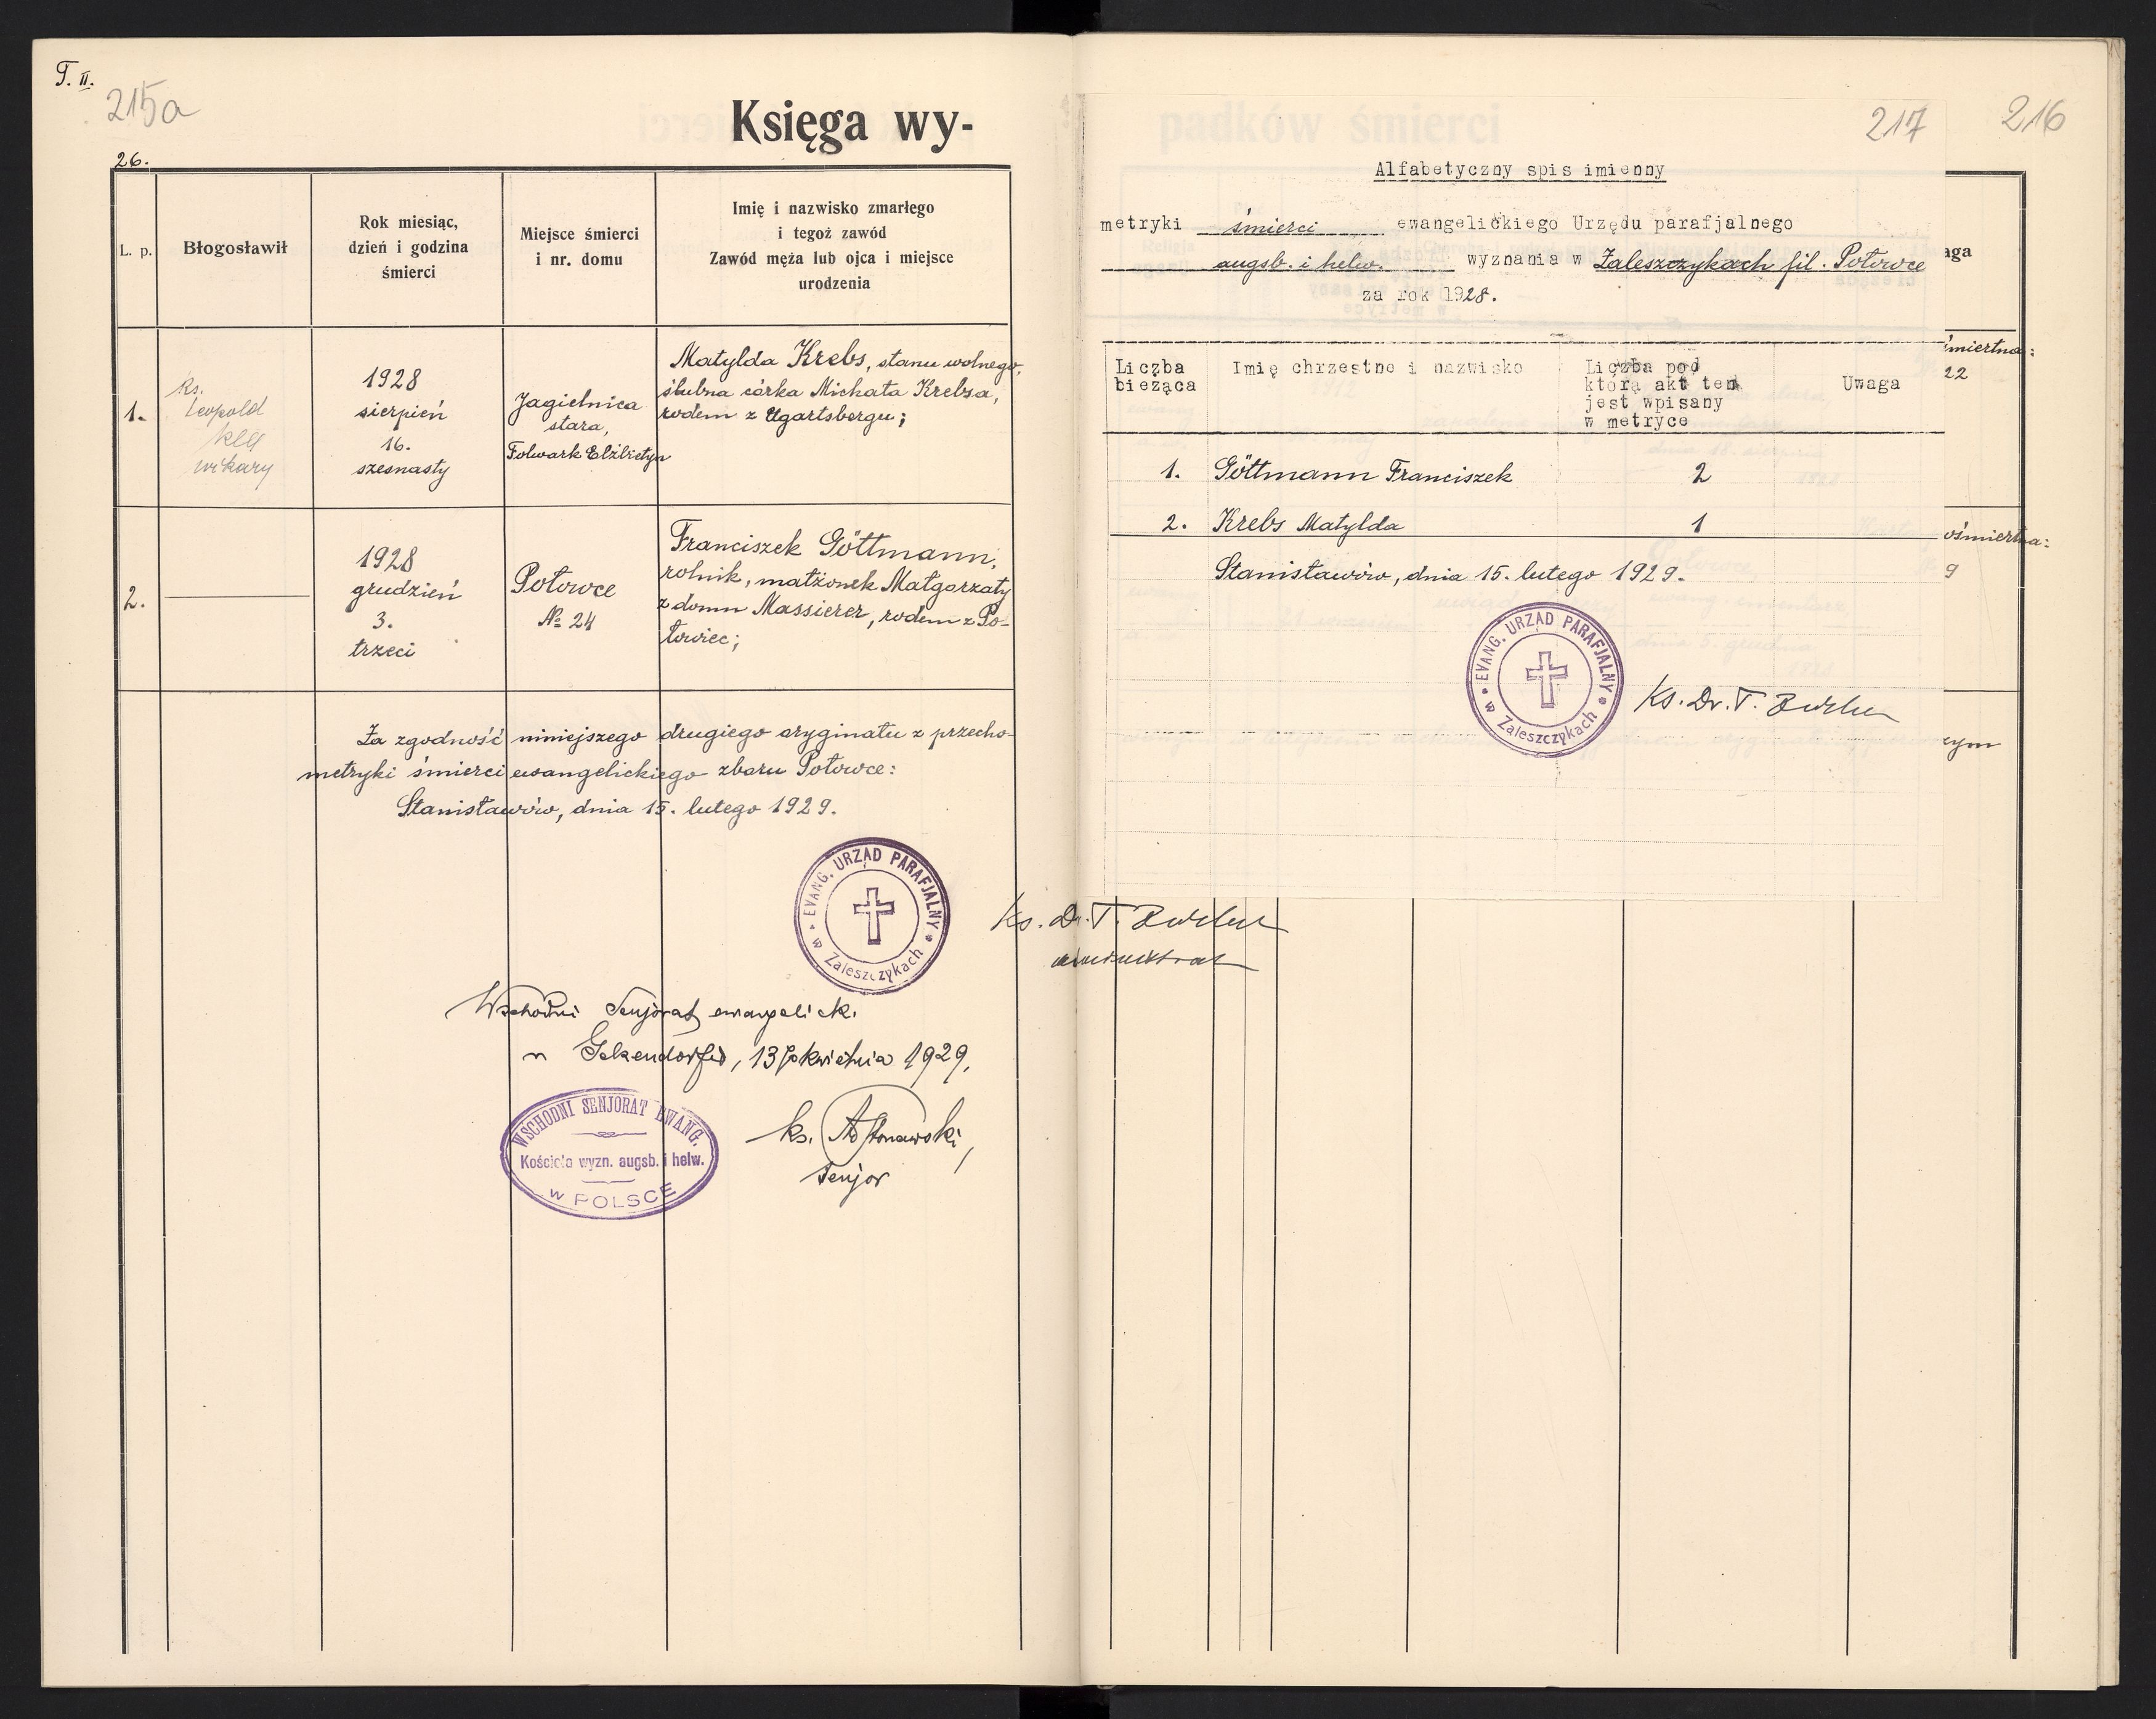 T. II.
215a
Księga wy-
26.
L. p.
Błogosławił
Rok miesiąc,
dzień i godzina
śmierci
Miejsce śmierci
i nr. domu
Imię i nazwisko zmarłego
i tegoż zawód
Zawód męża lub ojca i miejsce
urodzenia
1.
Ks.
Leopold
wikary
1928
sierpień
16.
szesnasty
Jagielnica
stara,
Folwark Elżbietyn
Matylda Krebs, stanu wolnego,
ślubna córka Michała Krebsa,
rodem z Ugartsbergu;
2.
1928
grudzień
3.
trzeci
Połowce
№ 24
Franciszek Göttmann,
rolnik, małżonek Małgorzaty
z domu Massierer, rodem z Po-
łowiec;
Za zgodność niniejszego drugiego oryginału z przecho-
metryki śmierci ewangelickiego zboru Połowce:
Stanisławów, dnia 15. lutego 1929.
EVANG. URZĄD PARAFJALNY
w Zaleszczykach
Ks. Dr. T. Zöckler
administrator
Wschodni Senjorat ewangelicki
w Gelsendorfie, 13go kwietnia 1929,
WSCHODNI SENJORAT EWANG.
Kościoła wyzn. augsb. i helw.
w POLSCE
ks.
senjor
217
216
padków śmierci
Alfabetyczny spis imienny
metryki śmierci ewangelickiego Urzędu parafjalnego
augsb. i helw. wyznania w Zaleszczykach fil. Połowce
za rok 1928.
Liczba
bieząca
Imię chrzestne i nazwisko
Liczba pod
którą akt ten
jest wpisany
w metryce
Uwaga
1. Göttmann Franciszek 2
2. Krebs Matylda 1
Stanisławów, dnia 15. lutego 1929.
EVANG. URZĄD PARAFJALNY
w Zaleszczykach
Ks. Dr. T. Zöckler
aga
śmiertna:
22
ośmiertna:
9
zym